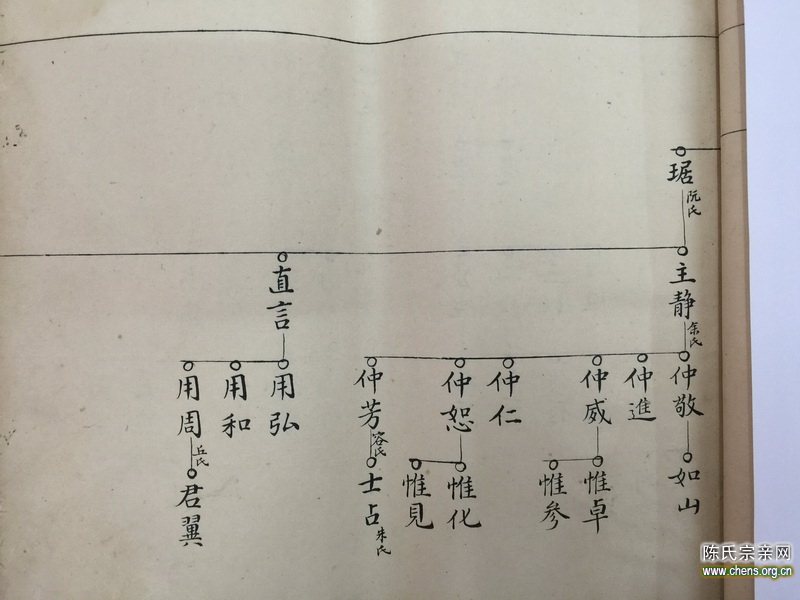 琚
阮氏
主静
余氏
直言
仲敬
仲進
仲威
仲仁
仲恕
仲芳
容氏
用弘
用和
用周
丘氏
如山
惟卓
惟參
惟化
惟見
士占
朱氏
君翼
陈氏宗亲网
www.chens.org.cn